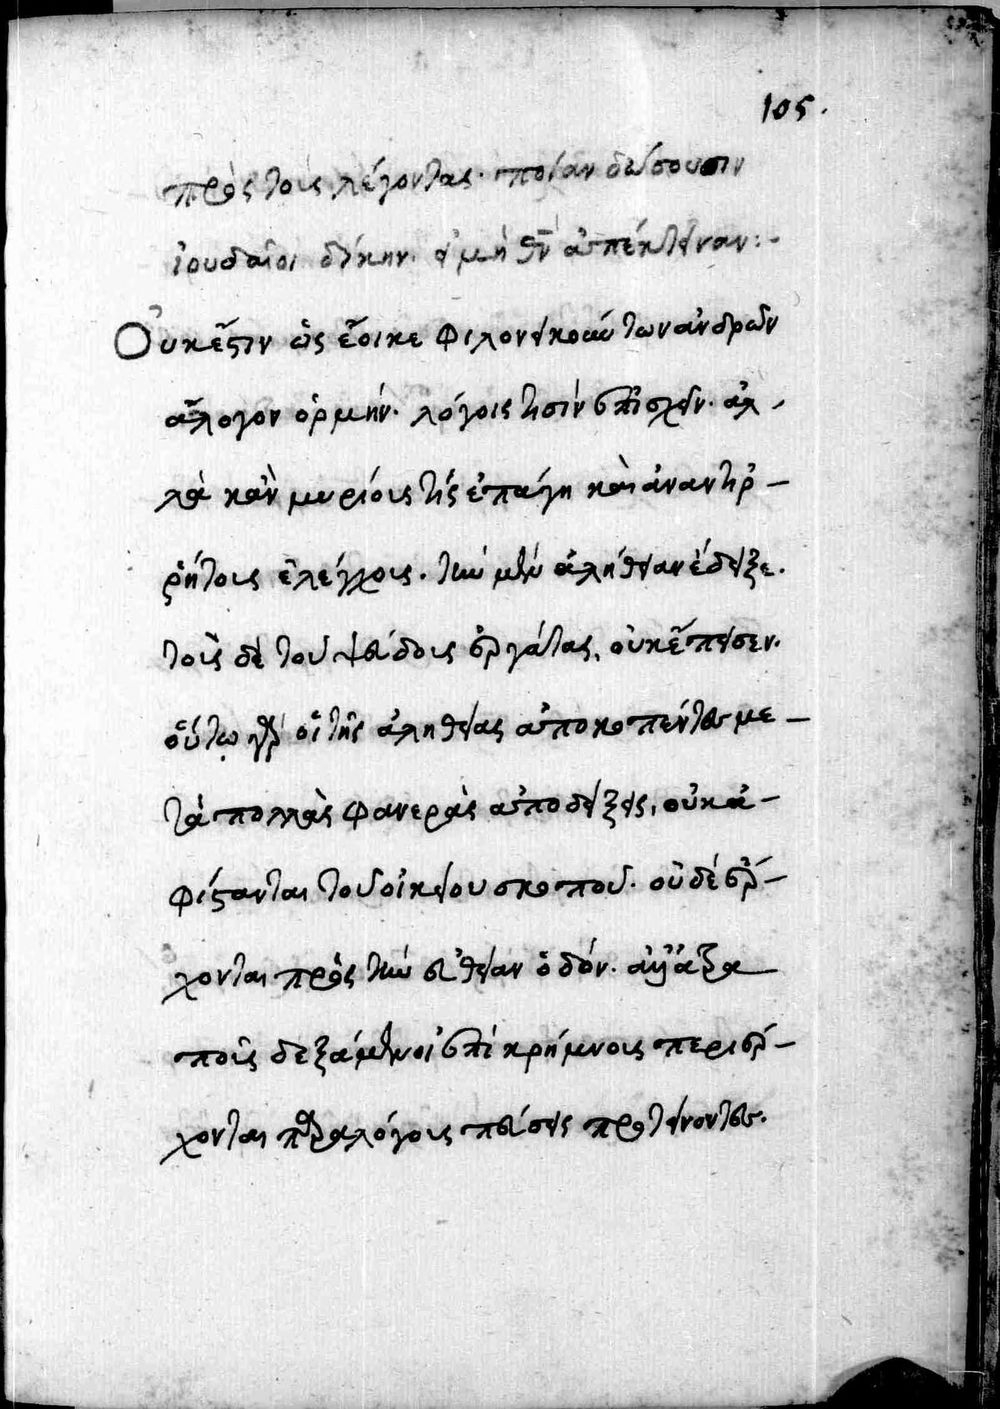 105.
πρὸς τοὺς λέγοντας· ποίαν δώσουσιν
ἰουδαῖοι δίκην· εἰ μὴ θν̅ ἀπέκτειναν:-
Οὐκ ἔστιν ὡς ἔοικε φιλονείκων τῶν ἀνδρῶν
ἄλογον ὁρμήν· λόγοις τισὶν ἐπισχεῖν· ἀλ-
λὰ κἂν μυρίοις τίς ἐπάγη καὶ ἀναντιρ-
ρήτοις ἐλέγχοις. τὴν μὲν ἀλήθειαν ἔδειξε.
τοὺς δὲ τοῦ ψεύδους ἐργάτας, οὐκ ἔπεισεν.
οὕτω γὰρ οἱ τῆς ἀληθείας ἀποκοπέντες με-
τὰ πολλὰς φανερὰς ἀποδείξεις, οὐκ ἀ-
φίστανται τοῦ οἰκείου σκοποῦ. οὐδὲ ἔρ-
χονται πρὸς τὴν εὐθεῖαν ὁδόν.
δεξάμενοι ἐπὶ κρήμνους περιέρ-
χονται παραλόγους πεύσεις προτείνοντες.